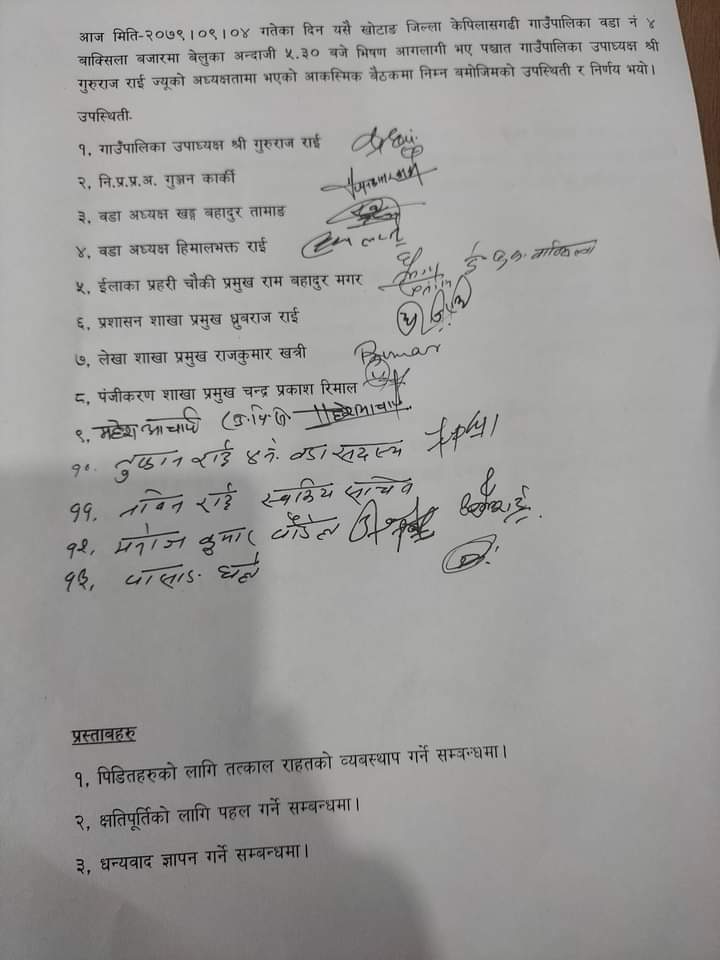 आज मिति-२०७९।०९।०४ गतेका दिन यसै खोटाङ जिल्ला केपिलासगढी गाउँपालिका वडा नं ४
बाक्सिला बजारमा बेलुका अन्दाजी ५.३० बजे भिषण आगलागी भए पश्चात गाउँपालिका उपाध्यक्ष श्री
गुरुराज राई ज्यूको अध्यक्षतामा भएको आकस्मिक बैठकमा निम्न बमोजिमको उपस्थिती र निर्णय भयो।
उपस्थिती.
१, गाउँपालिका उपाध्यक्ष श्री गुरुराज राई
२, नि.प्र.प्र.अ. गुञ्जन कार्की
३, वडा अध्यक्ष खड्ग बहादुर तामाङ
४, वडा अध्यक्ष हिमालभक्त राई
५, ईलाका प्रहरी चौकी प्रमुख राम बहादुर मगर
६, प्रशासन शाखा प्रमुख ध्रुबराज राई
७, लेखा शाखा प्रमुख राजकुमार खत्री
८, पंजीकरण शाखा प्रमुख चन्द्र प्रकाश रिमाल
९, महेश आचार्य
१०. तुफान राई ४ नं. वडा सदस्य
११. नविन राई स्वकिय सचिव
१२. मनोज कुमार पौडेल
१३. पासाङ घले
प्रस्ताबहरु
१, पिडितहरुको लागि तत्काल राहतको व्यबस्थाप गर्ने सम्बन्धमा।
२, क्षतिपूर्तिको लागि पहल गर्ने सम्बन्धमा।
३, धन्यवाद ज्ञापन गर्ने सम्बन्धमा।